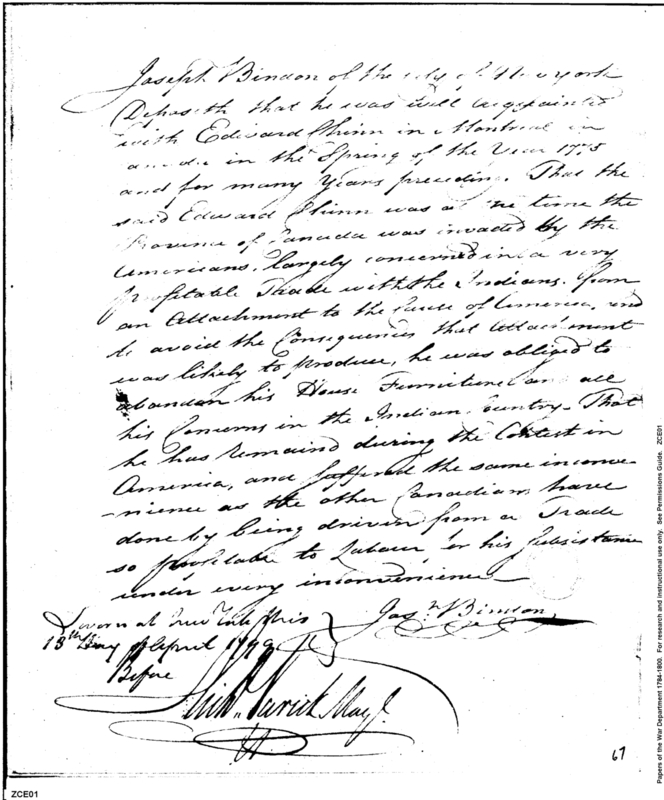 Joseph Bindon of the City of New York
Deposeth that he was well acquainted
with Edward Chinn in Montreal in
Canada in the Spring of the Year 1775
and for many Years preceding. That the
said Edward Chinn was at the time the
Province of Canada was invaded by the
Americans, largely concerned in a very
profitable Trade with the Indians. from
an Attachment to the Cause of America, and
to avoid the Consequences that Attachment
was likely to produce, he was obliged to
abandon his House Furniture and all
his Concerns in the Indian Country. That
he has remaind during the Contest in
America, and suffered the same inconve
-nience as the other Canadians have
done by being driven from a Trade
so profitable to Labour for his Subsistance
under every inconvenience
Sworn at New York this
13th Day of April 1799
Before
Jos. Bindon
Richd. Varick May.
67
ZCE01
Papers of the War Department 1784-1800. For research and instructional use only. See Permissions Guide. ZCE01